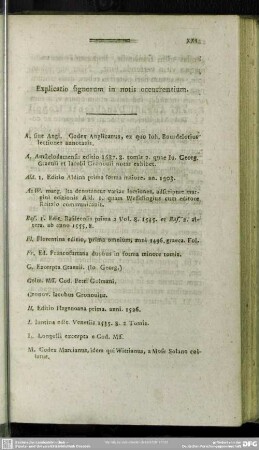 XXI
Explicatio signorum in notis occurrentium.
A. sive Angl. Codex Anglicanus, ex quo Ioh. Bourdelotius
lectiones annotavit.
A. Amstelodamensis editio 1687. 8. tomis 2. quae Io. Georg.
Graevii et Iacobi Gronovii notas exhibet.
Ald. 1. Editio Aldina prima forma maiore. an. 1503.
A. W. marg. ita denotantur variae lectiones, adscriptae mar-
gini editionis Ald. 1. quam Wesselingius cum editore
Reitzio communicavit.
Bas. 1. Edit. Basileensis prima 2 Vol. 8. 1545. et Bas. 2. al-
tera. ab anno 1555. 8.
Fl. Florentina editio, prima omnium, anni 1496. graeca. Fol.
Fr. Ed. Francofurtana duobus in forma minore tomis.
G. Excerpta Graevii. (Io. Georg.)
Gulm. Msf. Cod. Petri Gulmani.
Gronov. Iacobus Gronovius.
H. Editio Hagenoana prima. anni. 1526.
I. Iuntina edit. Venetiis 1535. 8. 2 Tomis.
L. Longolii excerpta e Cod. Msf.
M. Codex Marcianus, idem qui Wittianus, a Mose Solano col-
latus.
DFG